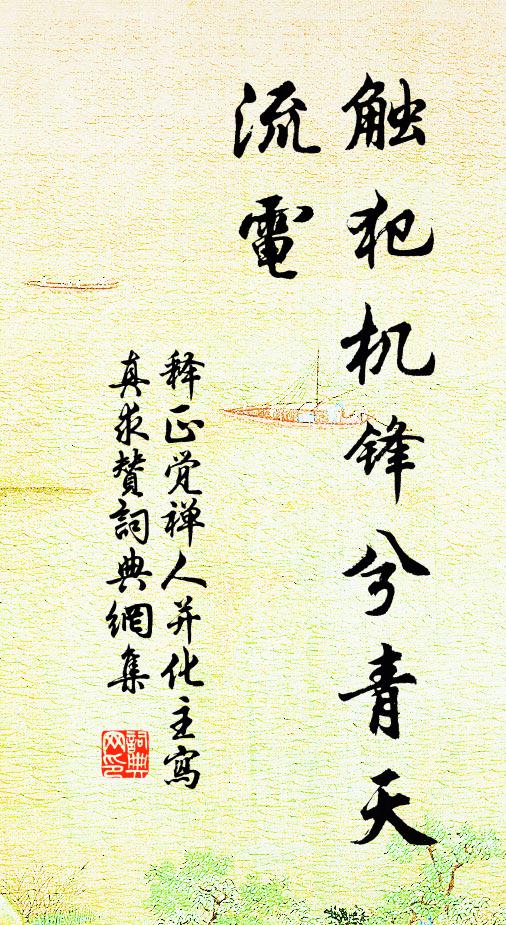 触犯机锋兮青天
流電
释正觉禅人并化主寫
真求赞詞典網集
詞典
网印